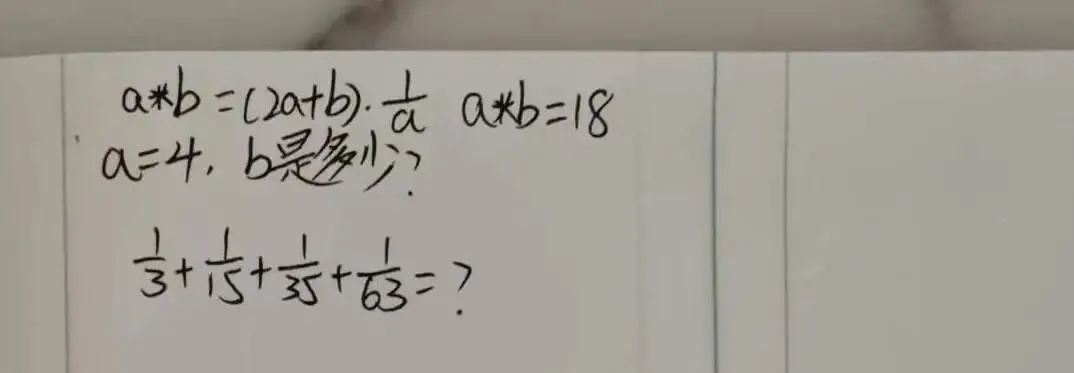 a*b=(2a+b)·1/a a*b=18
a=4, b是多少?
1/3+1/15+1/35+1/63=?